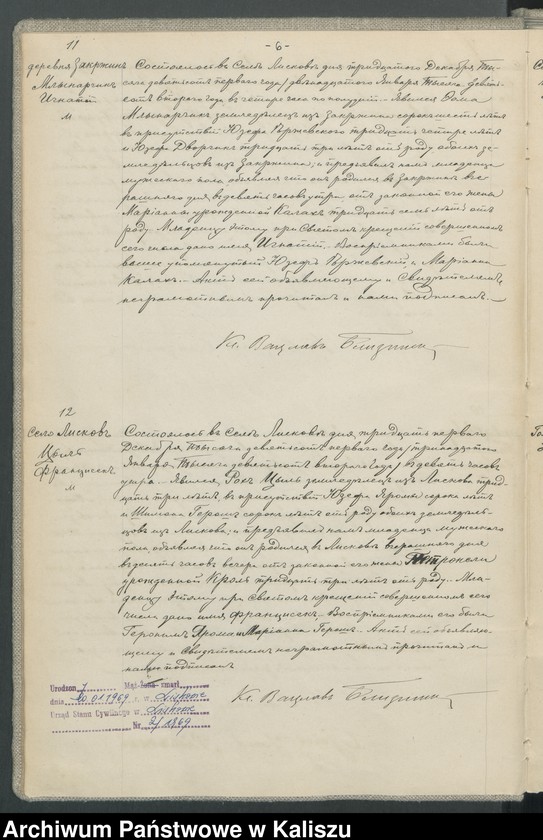 11
- 6 -
деревня Закржинъ
Млынарчикъ
Игнатій
м
Состоялось въ Селѣ Лисковѣ дня тридцатого Декабря Ты-
сяча девятьсотъ первого года / двѣнадцатого Января Тысяча девять-
сотъ второго года въ четыре часа по полудни. Явился
Млынарчикъ земледѣлецъ изъ Закржина сорока шести лѣтъ
въ присутствіи Юзефа Ржевского тридцать четыре лѣтъ
и Юзефа Дворчакъ тридцать три лѣтъ отъ роду обоихъ зе-
мледѣльцовъ изъ Закржина; и предъявилъ намъ младенца
мужеского пола объявляя что онъ родился въ Закржинѣ вче-
рашняго дня въ девять часовъ утра отъ законной его жены
Маріанны урожденной Калахъ тридцать семь лѣтъ отъ
роду. Младенцу этому при Святомъ крещеніи совершенномъ
сего числа дано имя Игнатій. Воспріемниками были
выше упомянутый Юзефъ Ржевскій и Маріанна
Калахъ. Актъ сей объявляющему и Свидѣтелямъ
неграмотнымъ прочитанъ и нами подписанъ.
Кс. Вацлавъ
12
село Лисковъ
Цыль
Францискъ
м
Состоялось въ Селѣ Лисковѣ дня тридцать первого
Декабря Тысяча девятьсотъ первого года / тринадцатого
Января Тысяча девятьсотъ второго года / въ девять часовъ
утра. Явился Рохъ Цыль земледѣлецъ изъ Лискова трид-
цать три лѣтъ, въ присутствіи Юзефа сорока лѣтъ
и Шимона Герошъ сорока лѣтъ отъ роду обоихъ земледѣль-
цовъ изъ Лискова; и предъявилъ намъ младенца мужеского
пола, объявляя что онъ родился въ Лисковѣ вчерашняго дня
въ десять часовъ вечера отъ законной его жены Петронели
урожденной Кроль тридцать три лѣтъ отъ роду. Мла-
денцу этому при Святомъ крещеніи совершенномъ сего
числа дано имя Францискъ. Воспріемниками его были
Геронимъ и Маріанна Герошъ. Актъ сей объявляю-
щему и Свидѣтелямъ неграмотнымъ прочитанъ и
нами подписанъ
Кс. Вацлавъ
Urodzon y Mąż-żona zmarł
dnia 20.01.1969 r. w Liskowie
Urząd Stanu Cywilnego w Liskowie
Nr 2/1969
Archiwum Państwowe w Kaliszu